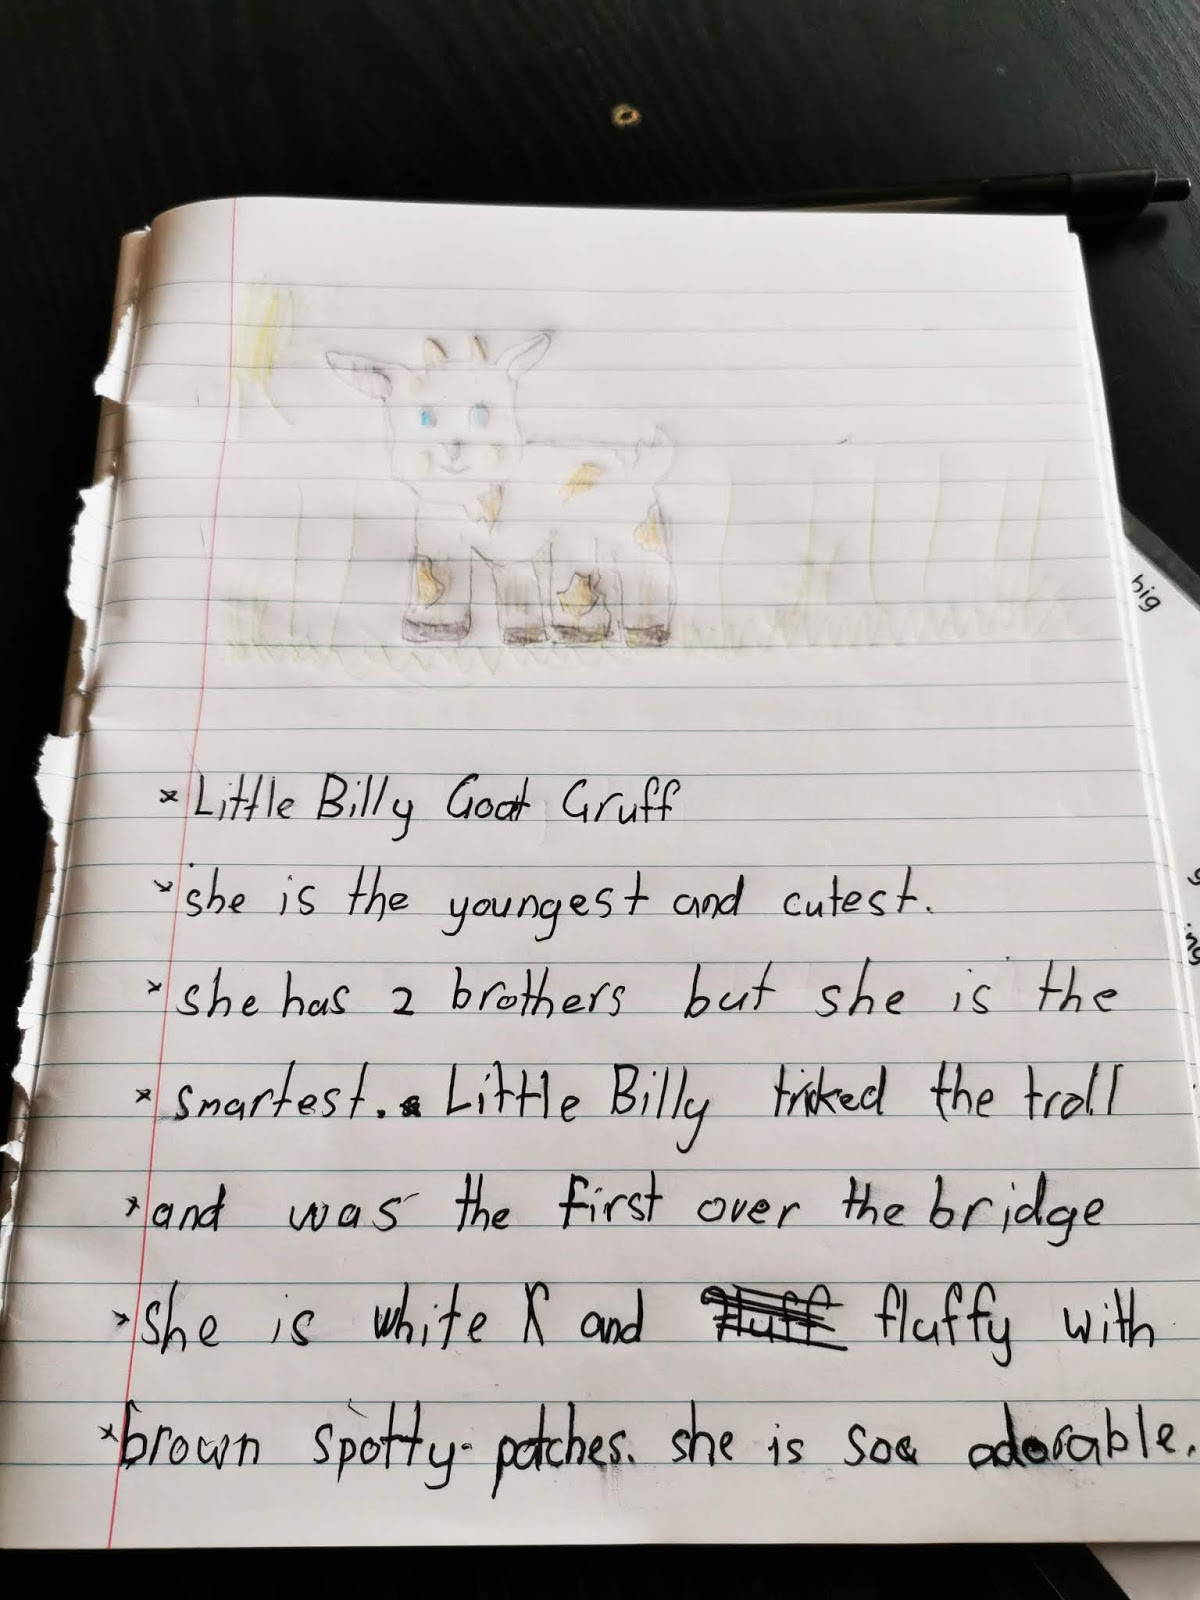 * Little Billy Goat Gruff
* she is the youngest and cutest.
* she has 2 brothers but she is the
* smartest. Little Billy tricked the troll
* and was the first over the bridge
* she is white and fluffy with
* brown spotty patches. she is soo adorable.
big